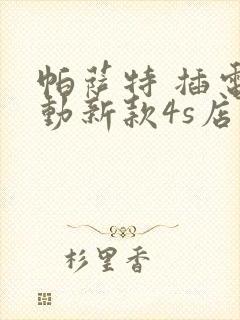 帕萨特 插电
動新款4s店
杉里香